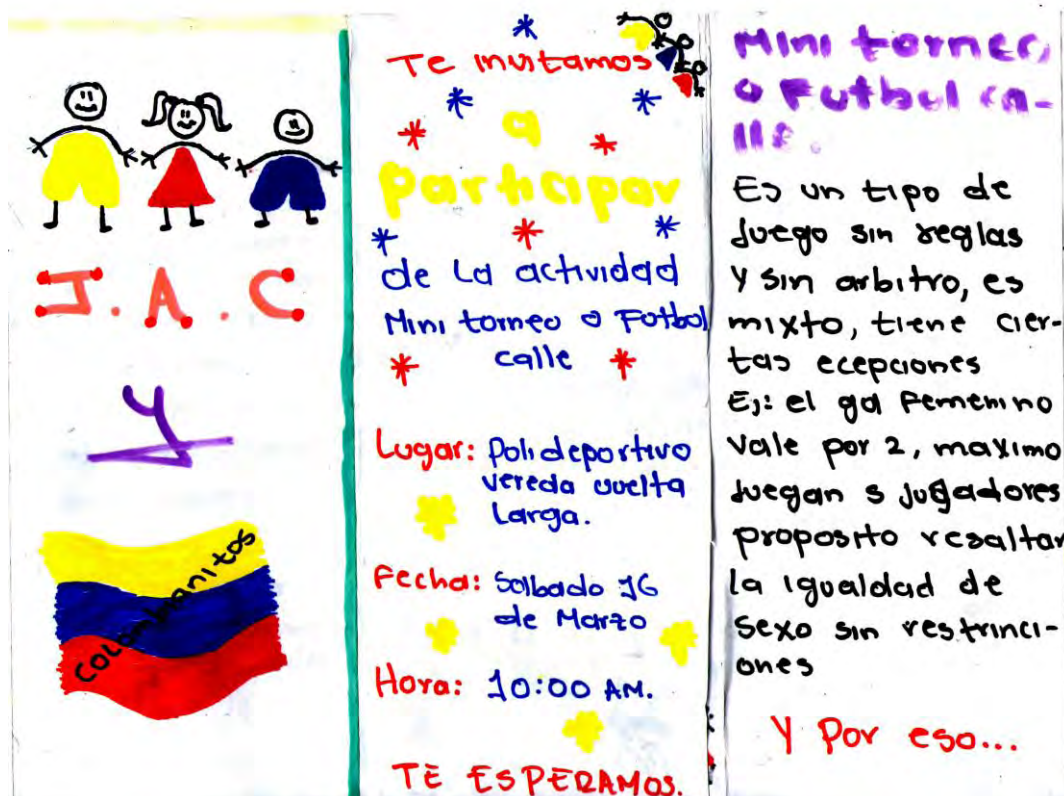 J.A.C
Y
COLOMBIANITOS
Te invitamos
a
participar
de La actividad
Mini torneo o Futbol
calle
Lugar: Polideportivo
vereda vuelta
Larga.
Fecha: Sabado 16
de Marzo
Hora: 10:00 AM.
TE ESPERAMOS.
Mini torneo
o Futbol ca-
lle.
Es un tipo de
Juego sin reglas
Y sin arbitro, es
mixto, tiene cier-
tas ecepciones
Ej: el gol Femenino
vale por 2, maximo
Juegan 5 jugadores
proposito resaltar
la igualdad de
sexo sin restrinci-
ones
Y Por eso...